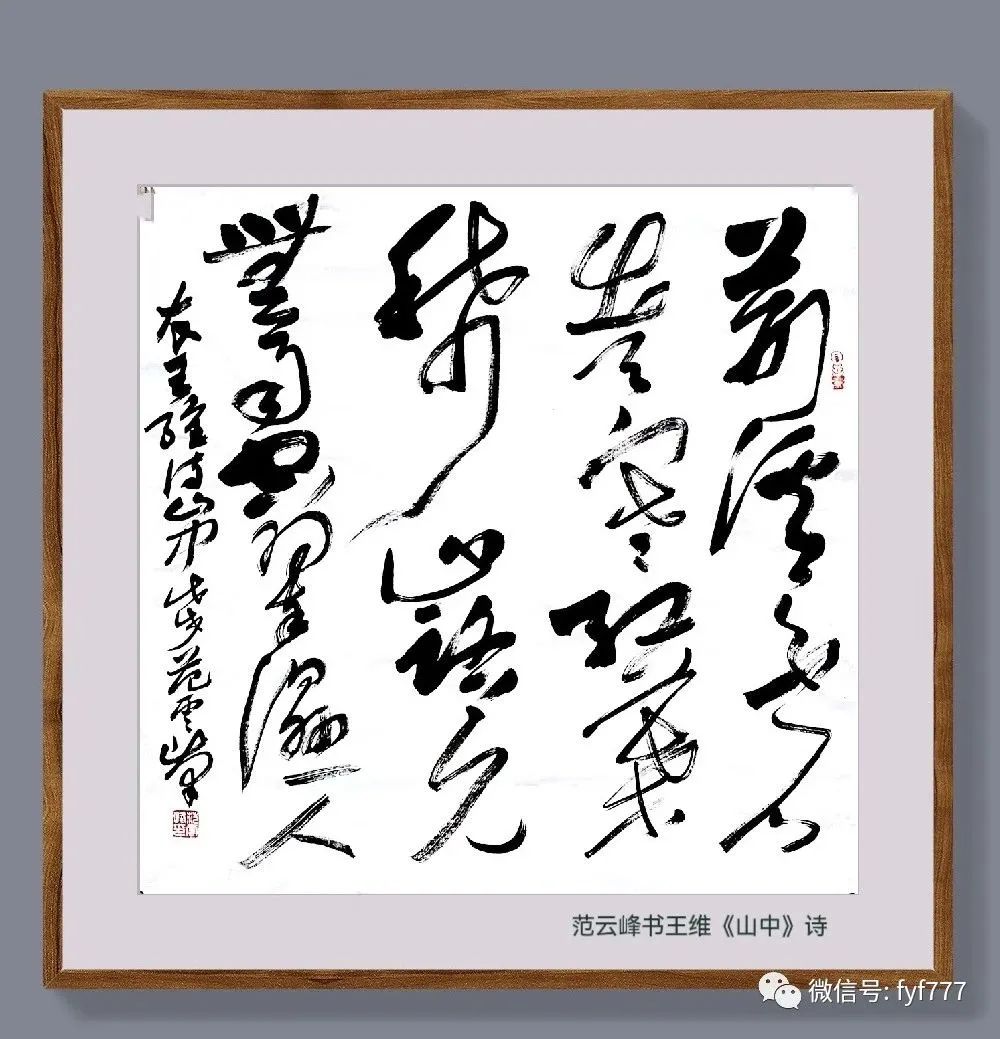 荆溪白石
出天寒紅葉
稀山路元
無雨空翠濕人
衣王維诗山中范云峰
范云峰书王维《山中》诗
微信号: fyf777